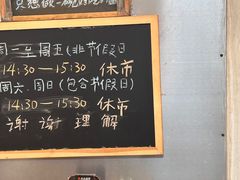 只想做一碗好吃
周一~周五(非节假日
14:30—15:30 休市
周六、周日(包含节假日
14:30—15:30 休市
谢谢理解